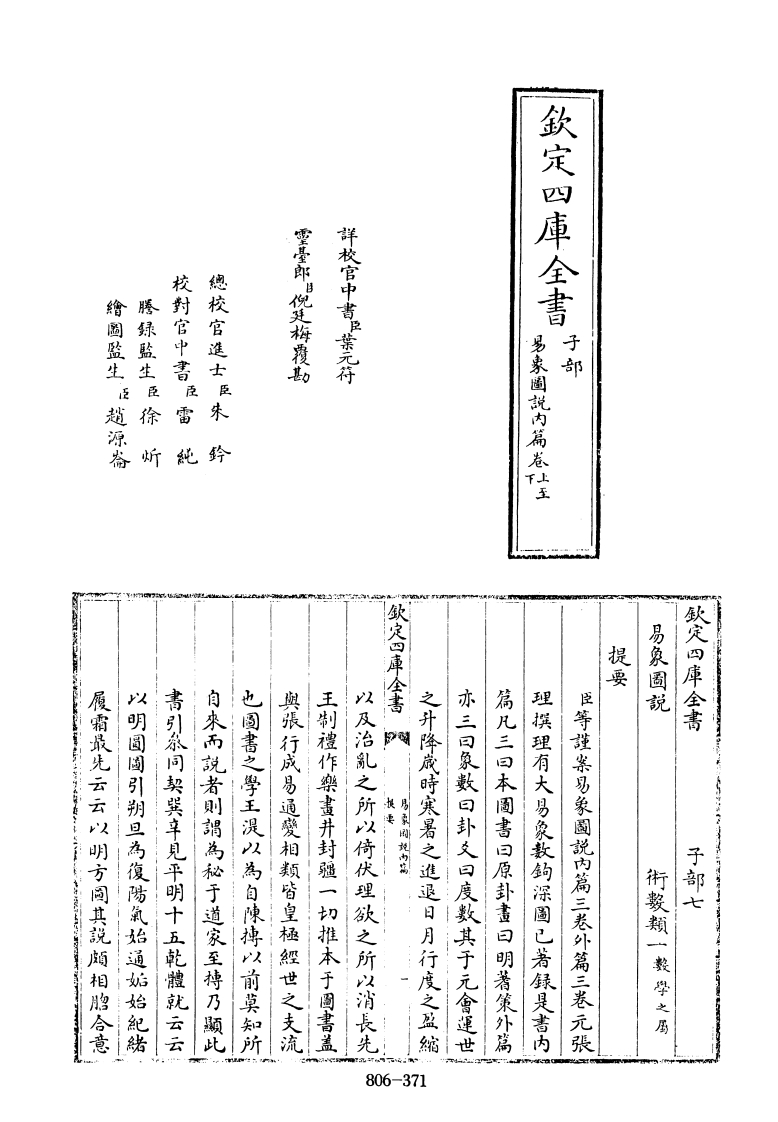 欽定四庫全書
子部
易象圖說內篇卷上至
下
詳校官中書臣葉元符
靈臺郎臣倪廷梅覆勘
總校官進士臣朱鈐
校對官中書臣雷純
謄録監生臣徐炘
繪圖監生臣趙源崙
欽定四庫全書 子部七
易象圖說 術數類一數學之屬
提要
臣等謹案易象圖說內篇三卷外篇三卷元張
理撰理有大易象數鈎深圖已著録是書內
篇凡三曰本圖書曰原卦畫曰明蓍策外篇
亦三曰象數曰卦爻曰度數其于元會運世
之升降歲時寒暑之進退日月行度之盈縮
欽定四庫全書
易象圖說內篇
提要
一
以及治亂之所以倚伏理欲之所以消長先
王制禮作樂畫井封疆一切推本于圖書蓋
與張行成易通變相類皆皇極經世之支流
也圖書之學王湜以為自陳摶以前莫知所
自來而説者則謂為秘于道家至摶乃顯此
書引叅同契巽辛見平明十五乾體就云云
以明圓圖引朔旦為復陽氣始通姤始紀緒
履霜最先云云以明方圖其説頗相脗合意
806-371